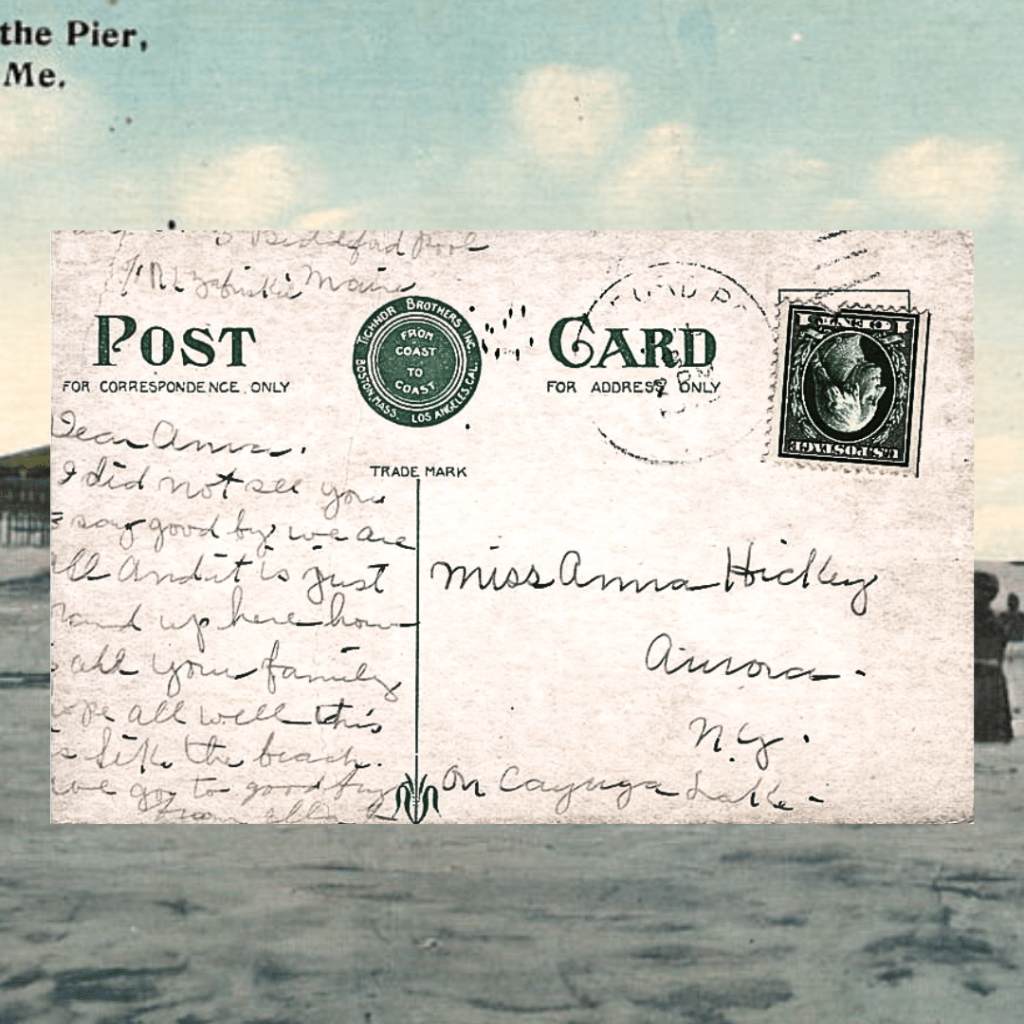 the Pier,
Me.
Biddeford Pool
Maine
POST
TICHNOR BROTHERS INC.
BOSTON, MASS. LOS ANGELES, CAL.
FROM
COAST
TO
COAST
CARD
FOR CORRESPONDENCE ONLY
FOR ADDRESS ONLY
TRADE MARK
U.S. POSTAGE
Dear Anna.
I did not see you
say good by we are
all and it is just
up here how
all your family
hope all well this
is like the beach.
we go to good by
from all
Miss Anna Hickley
Aurora.
N.Y.
On Cayuga Lake.